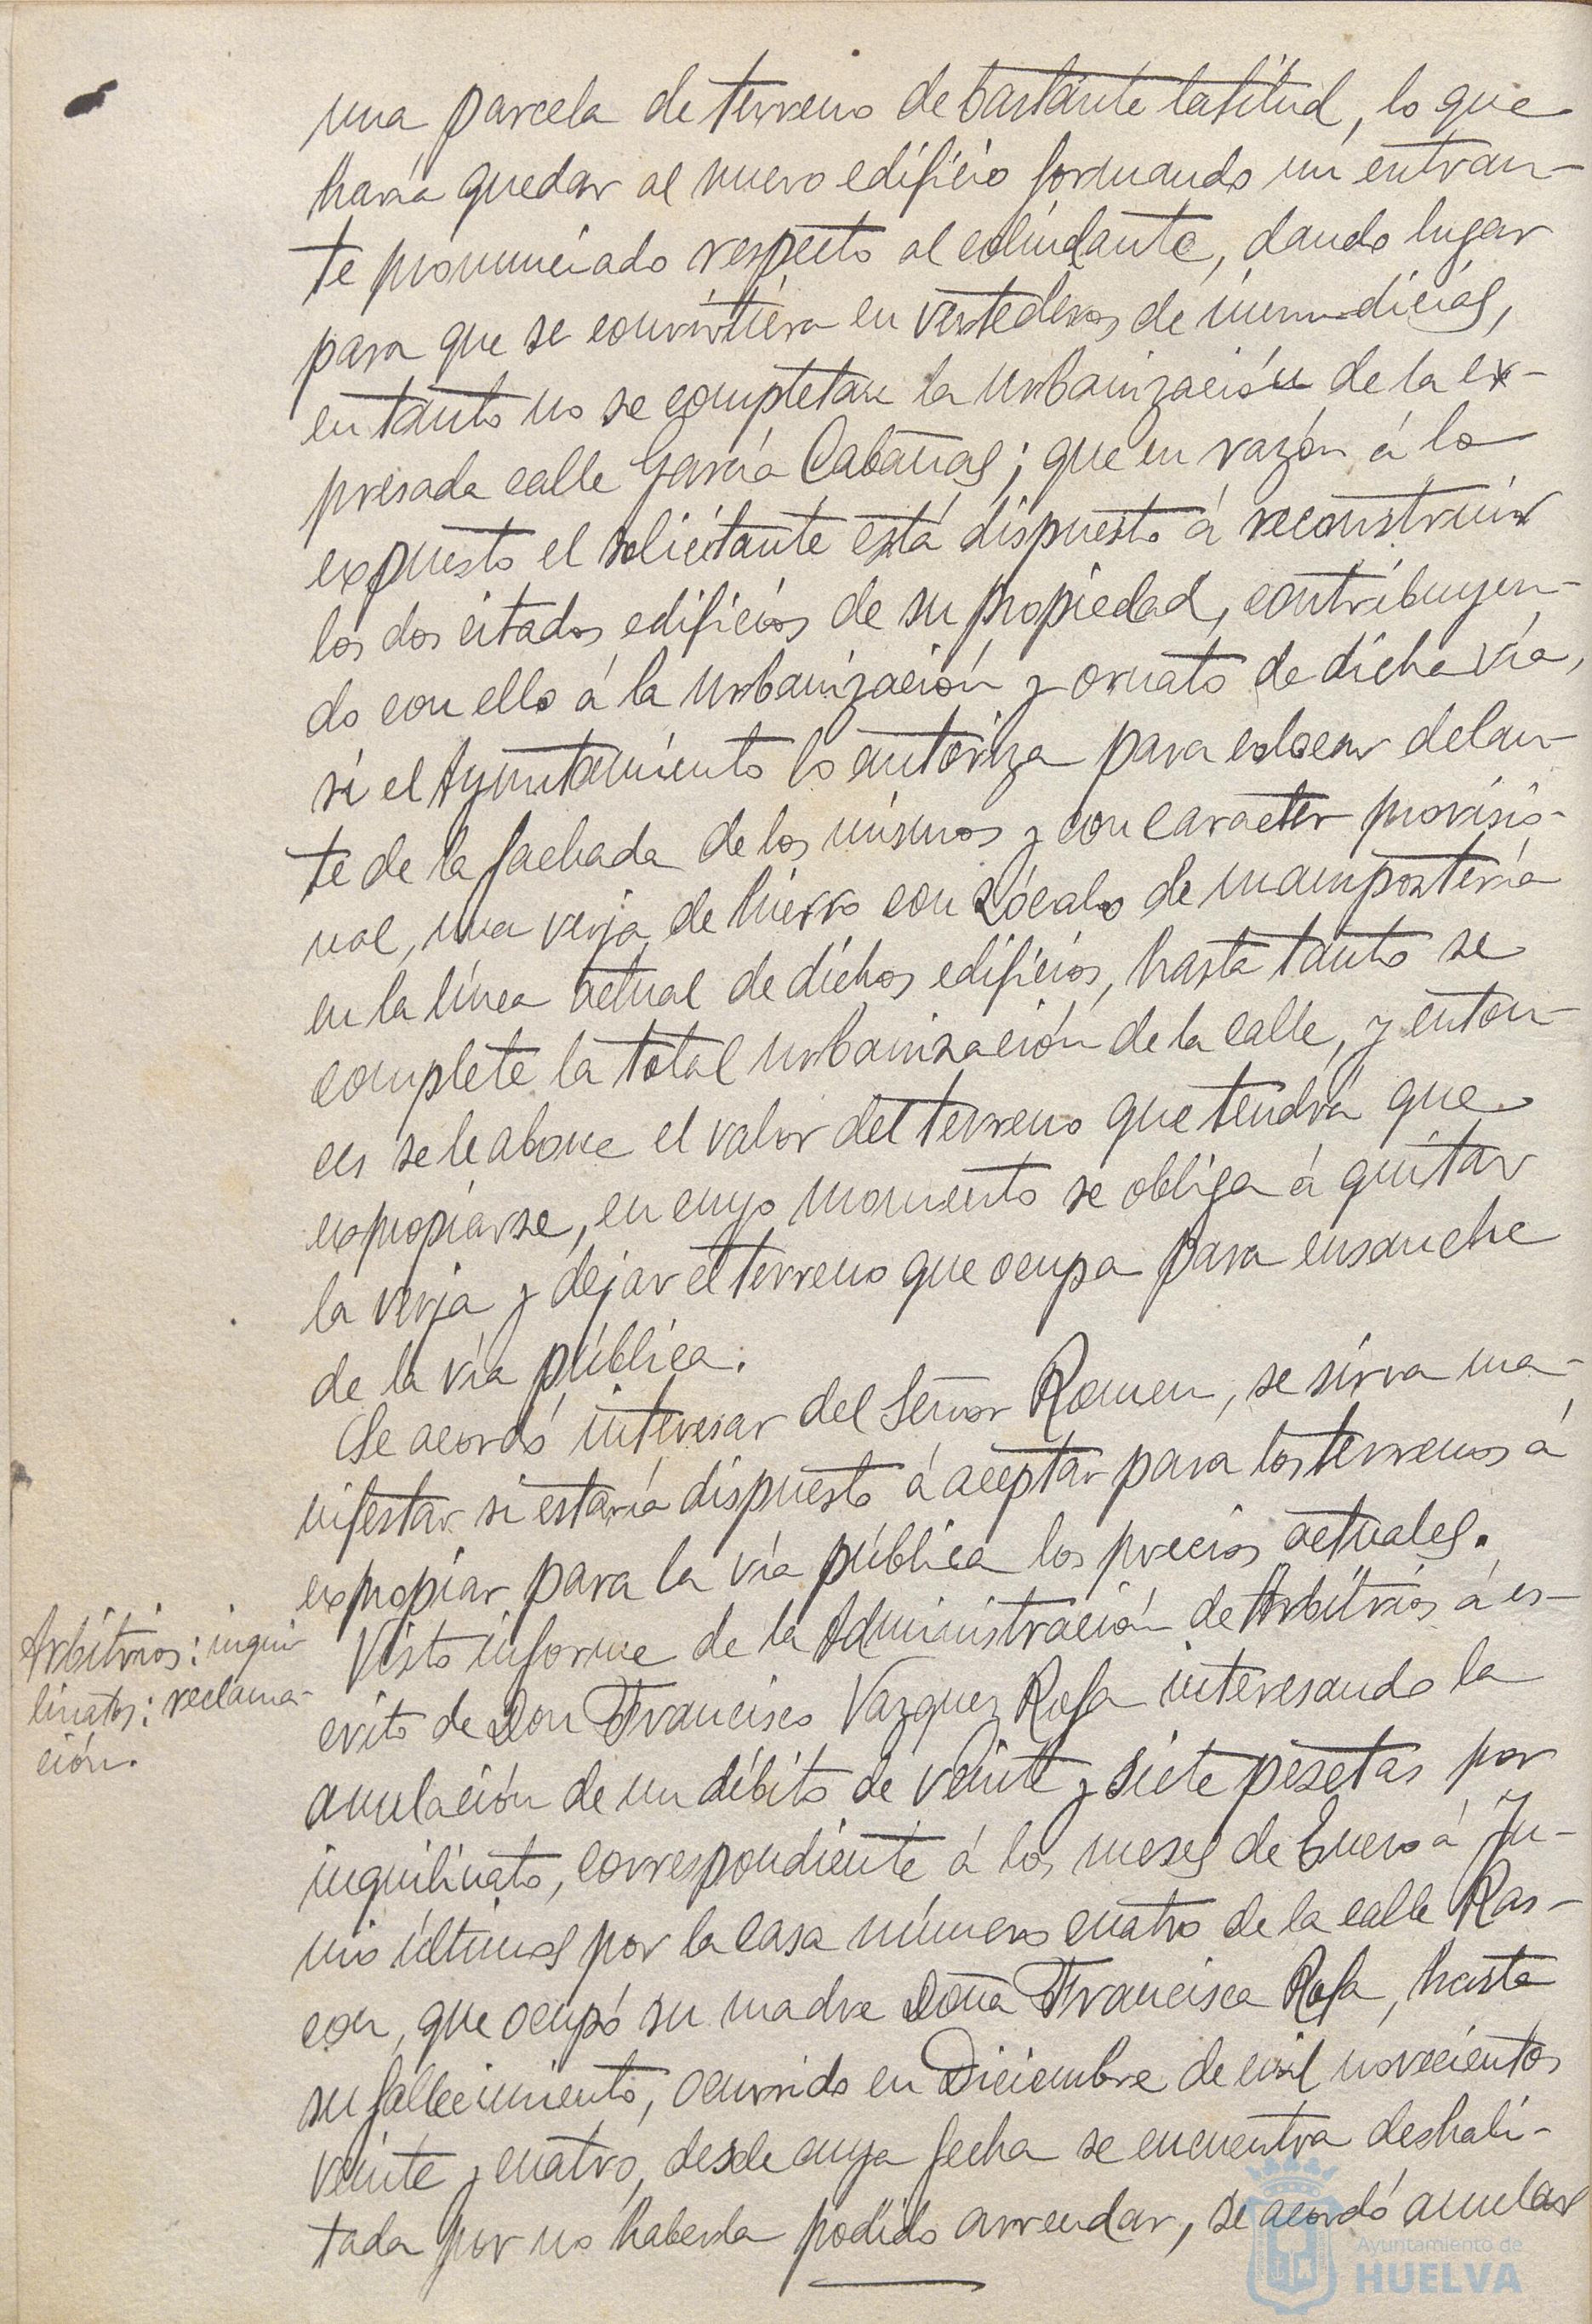 una parcela de terreno de bastante latitud, lo que
haría quedar al nuevo edificio formando un entran-
te pronunciado respecto al colindante, dando lugar
para que se convirtiera en vertederos de inmundicias,
en tanto no se completare la urbanización de la ex-
presada calle García Cabañas; que en razón á lo
expuesto el solicitante está dispuesto á reconstruir
los dos citados edificios de su propiedad, contribuyen-
do con ello á la urbanización y ornato de dicha vía,
si el Ayuntamiento lo autoriza para colocar delan-
te de la fachada de los mismos y con caracter provisio-
nal, una verja de hierro con zócalo de mampostería
en la línea actual de dichos edificios, hasta tanto se
complete la total urbanización de la calle, y enton-
ces se le abone el valor del terreno que tendrá que
expropiarse, en cuyo momento se obliga á quitar
la verja y dejar el terreno que ocupa para ensanche
de la vía pública.
Se acordó interesar del Señor Romeu, se sirva ma-
nifestar si estaría dispuesto á aceptar para los terrenos á
expropiar para la vía pública los precios actuales.
Arbitrios: inqui
linatos: reclama-
ción.
Visto informe de la Administración de Arbitrios á es-
crito de Don Francisco Vazquez Rofa interesando la
anulación de un débito de veinte y siete pesetas por
inquilinato, correspondiente á los meses de Enero á Ju-
nio últimos por la casa número cuatro de la calle Ras-
con, que ocupó su madre Doña Francisca Rofa, hasta
su fallecimiento, ocurrido en Diciembre de mil novecientos
veinte y cuatro, desde cuya fecha se encuentra deshabi-
tada por no haberla podido arrendar, se acordó anular
Ayuntamiento de
HUELVA